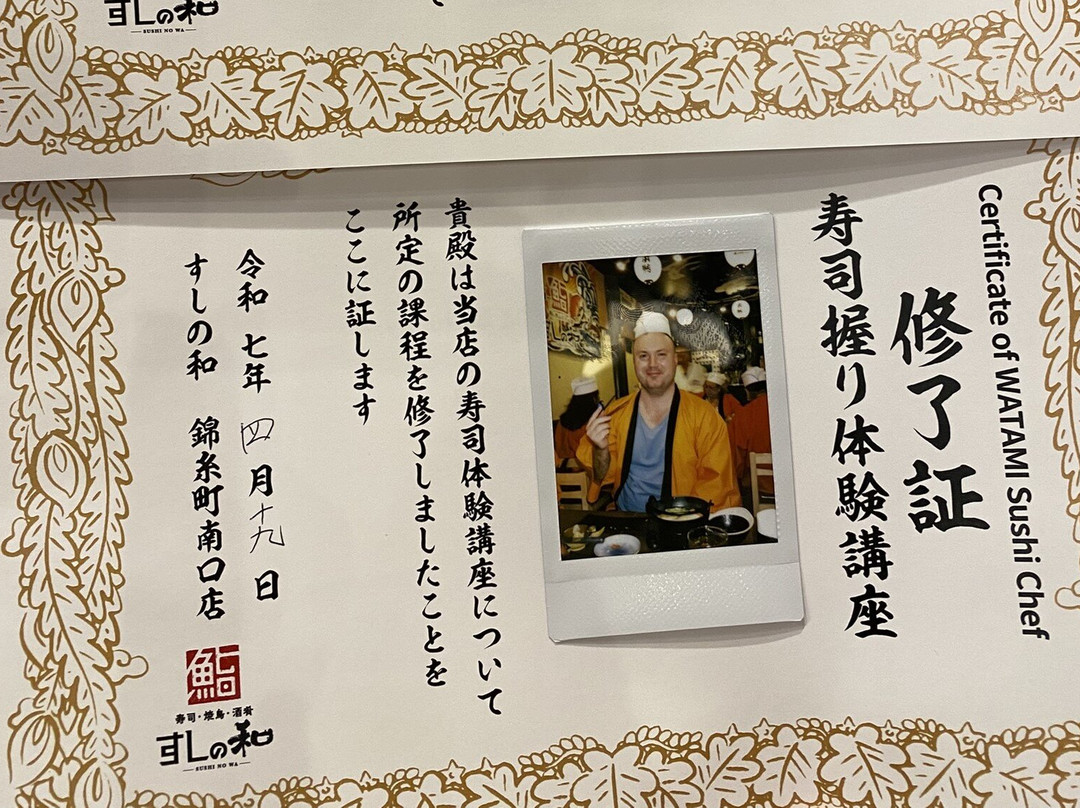 すしの和
SUSHI NO WA
Certificate of WATAMI Sushi Chef
修了証
寿司握り体験講座
貴殿は当店の寿司体験講座について
所定の課程を修了しましたことを
ここに証します
令和 七年 四月 十九 日
すしの和 錦糸町南口店
鮨
寿司・焼鳥・酒肴
すしの和
SUSHI NO WA